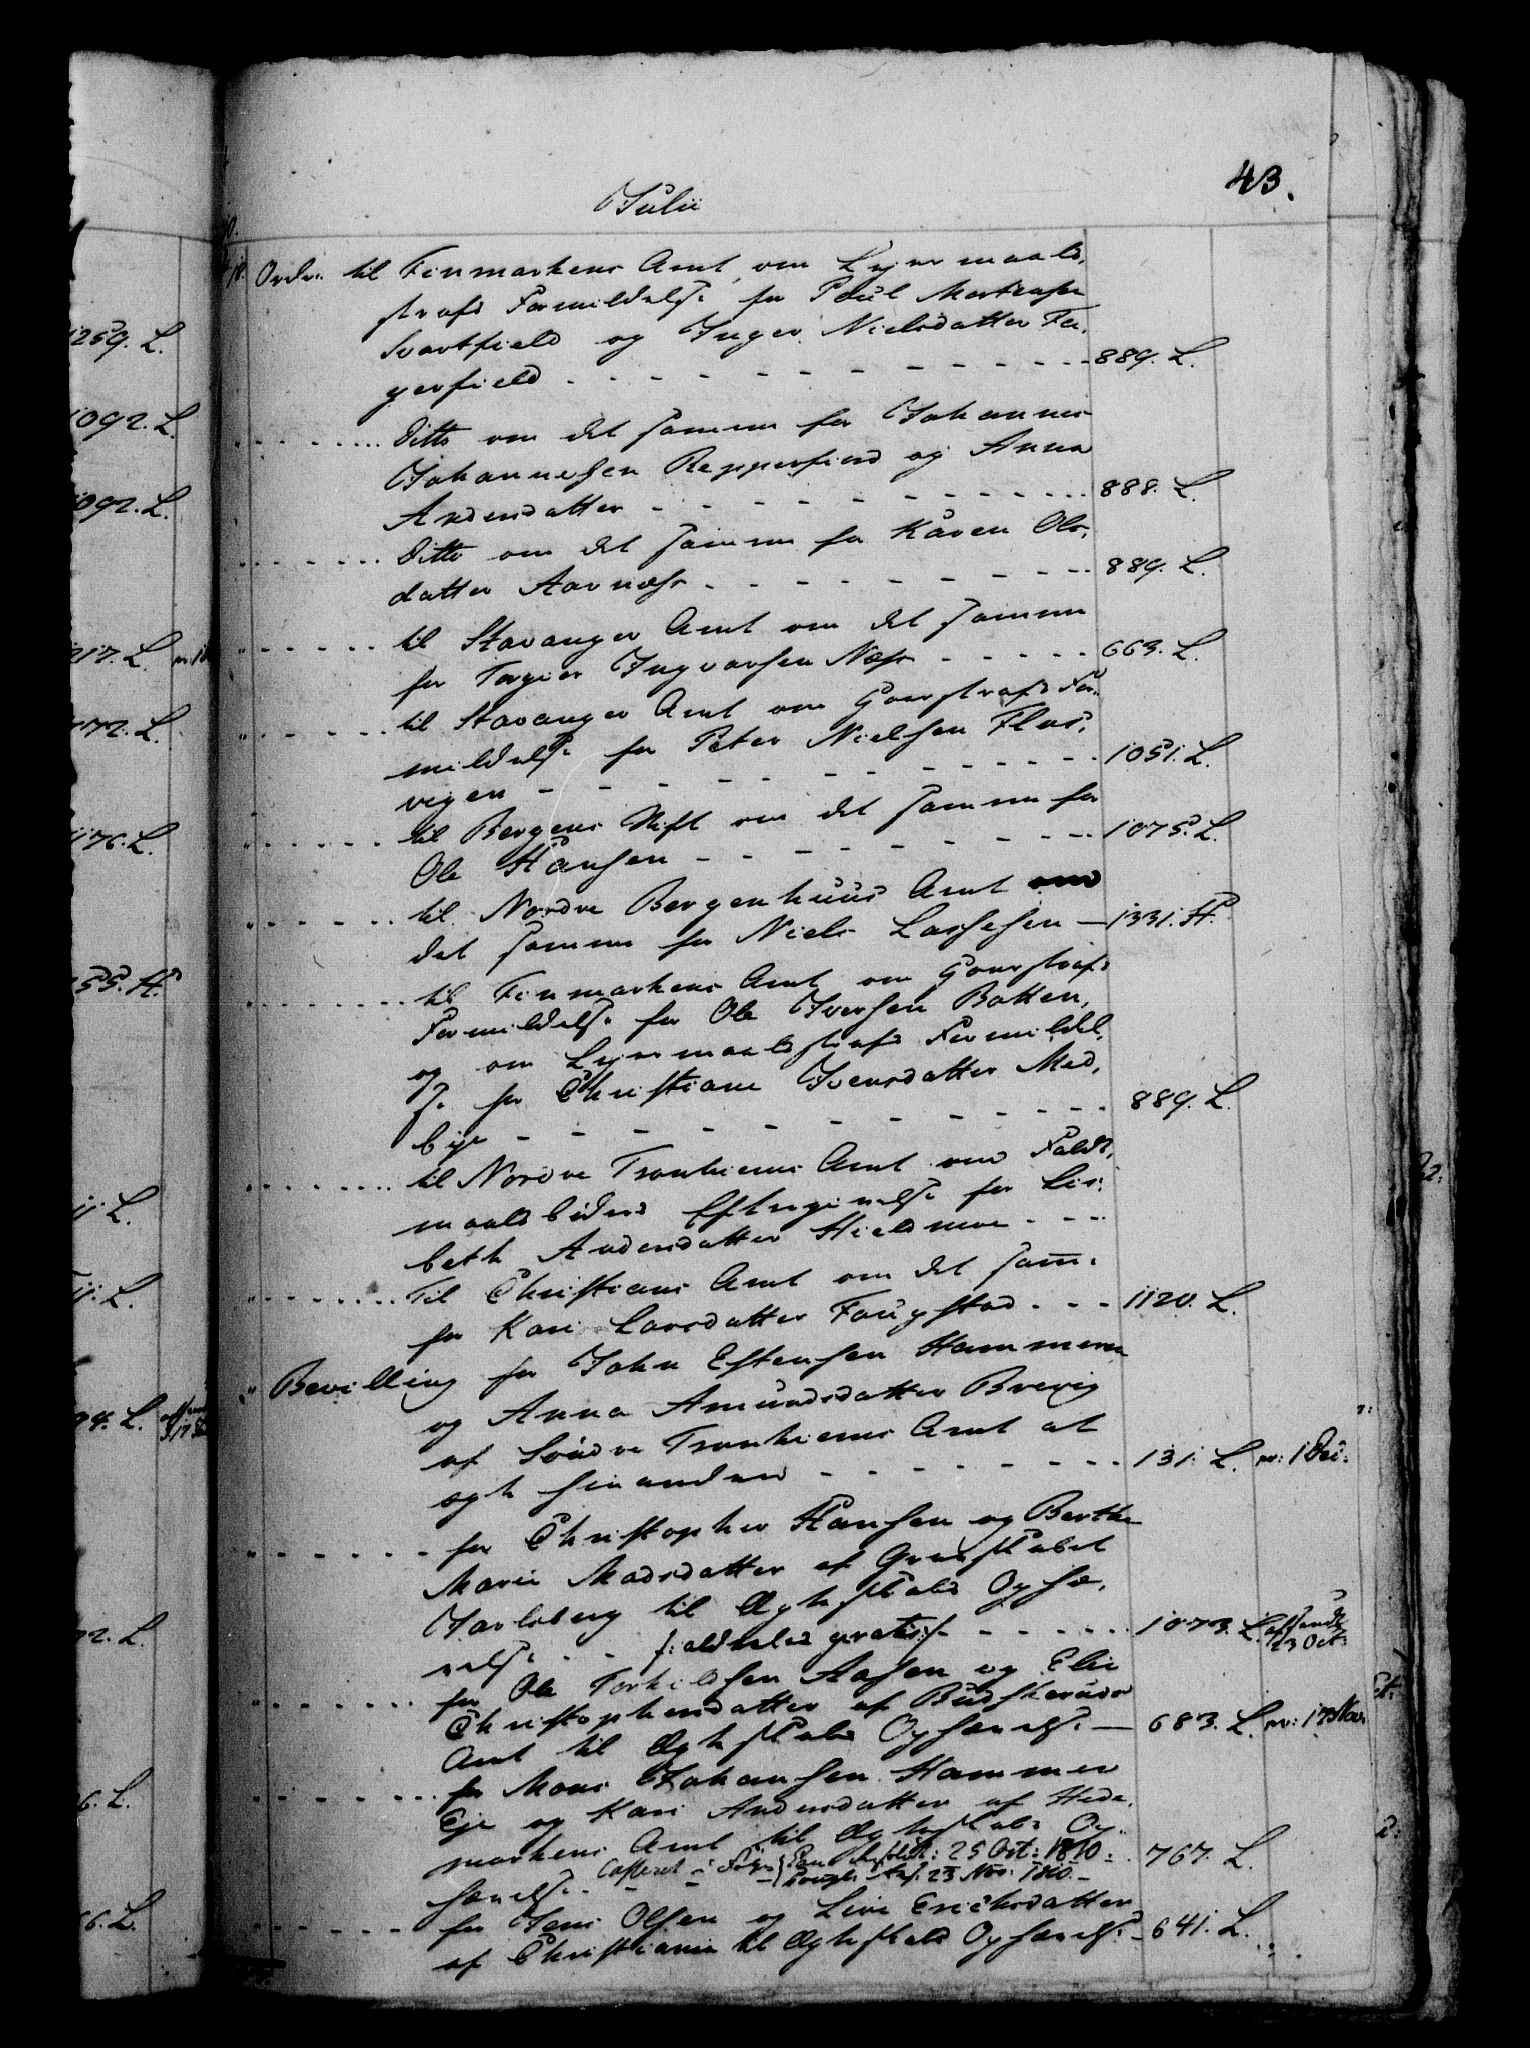 43.
Julii
Ordre til Finmarkens Amt om Lejermaals,
strafs Formildelse for Poul Mortensen
Svartfield og Inger Nielsdatter Fa,
gerfield - - - 889. L.
Ditto om det samme for Johannes
Johannesen Repperfiord og Anna
Andersdatter - - - 888. L.
Ditto om det samme for Karen Ols,
datter Aarnæss - - - 889. L.
til Stavanger Amt om det samme
for Torgier Ingvarsen Næss - - - 663. L.
til Stavanger Amt om Hoerstrafs For,
mildelse for Peter Nielsen Flus,
vigen - - - 1051. L.
til Bergens Stift om det samme for
Ole Hansen - - - 1075. L.
til Nordre Bergenhuus Amt om
det samme for Niels Lassesen - 1331. H.
til Finmarkens Amt om Hoerstrafs
Formildelse for Ole Iversen Botten,
og om Lejermaalsstrafs Formildel,
se for Christiane Iversdatter Mæd,
bye - - - 889. L.
til Nordre Tronhiems Amt om Faldt,
maals bøders Eftergivelse for Lis,
beth Andersdatter Hieldmoe - - -
Til Christians Amt om det sam̅e
for Kari Larsdatter Faugstad - - - 1120. L.
Bevilling for John Estensen Hammeren
og Anna Amundsdatter Brevig
af Søndre Tronhiems Amt at
ægte hinanden - - - 131. L. nr: 1 Dec:
for Christopher Hansen og Berthe
Marie Madsdatter af Grevskabet
Jarlsberg til Ægteskabs Ophæ,
velse - - /: aldeles gratis :/ - - - 1073. L. afsendt
23 Oct:
for Ole Torkildsen Aasen og Elie
Christophersdatter af Budskeruds
Amt til Ægteskabs Ophævelse - 683. L. nr: 17 Nov:
for Mons Johansen Hammer
Eje og Kari Andersdatter af Hede,
markens Amt til Ægteskabs Op,
hævelse - - - 25 Oct: 1810: 767. L.
23 Nov: 1810.
for Jens Olsen og Live Erichsdatter
af Christiania til Ægteskabs Ophævelse - 641. L.
1259. L.
1092. L.
1092. L.
217. L.
772. L.
1176. L.
L.
L.
94. L.
L.
6. L.
6. L.